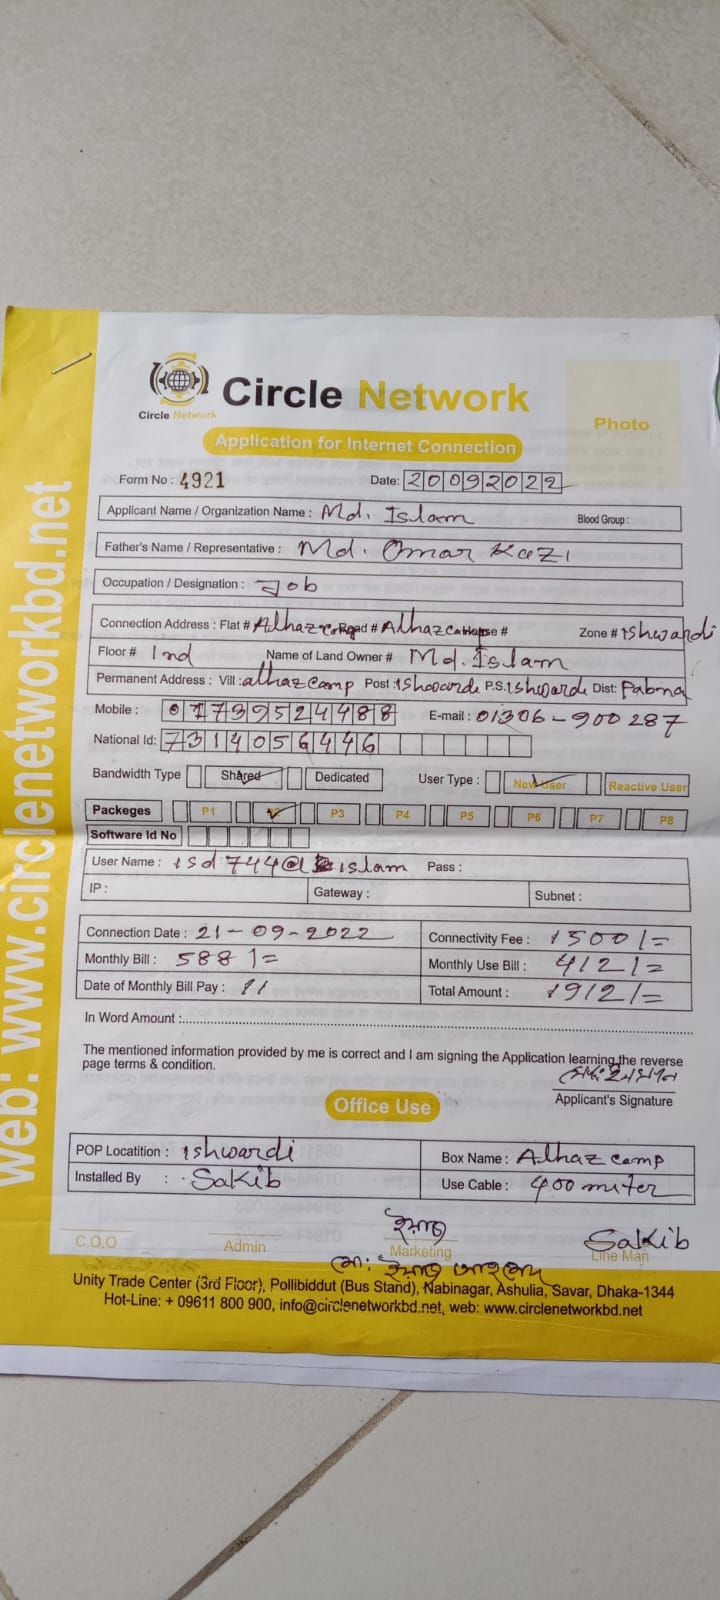 Circle Network
Circle Network
Photo
Application for Internet Connection
Form No : 4921 Date: 20092022
Applicant Name / Organization Name : Md. Islam Blood Group :
Father's Name / Representative : Md. Omar Kazi
Occupation / Designation : Job
Connection Address : Flat # Alhaz Camp Road # Alhaz Camp House # Zone # Ishwardi
Floor # 1nd Name of Land Owner # Md. Islam
Permanent Address : Vill : alhaz camp Post : Ishwarde P.S. Ishwarde Dist: Pabna
Mobile : 01739524488 E-mail : 01306-900287
National Id: 7314056446
Bandwidth Type Shared Dedicated User Type : New User Reactive User
Packeges P1 P3 P4 P5 P6 P7 P8
Software Id No
User Name : isd744@ islam Pass :
IP : Gateway : Subnet :
Connection Date : 21-09-2022 Connectivity Fee : 1500/=
Monthly Bill : 588/= Monthly Use Bill : 412/=
Date of Monthly Bill Pay : 11 Total Amount : 1912/=
In Word Amount :
The mentioned information provided by me is correct and I am signing the Application learning the reverse
page terms & condition.
Applicant's Signature
Office Use
POP Locatition : Ishwardi Box Name : Alhaz camp
Installed By : Sakib Use Cable : 400 miter
Sakib
C.O.O Admin Marketing Line Man
Unity Trade Center (3rd Floor), Pollibiddut (Bus Stand), Nabinagar, Ashulia, Savar, Dhaka-1344
Hot-Line: + 09611 800 900, info@circlenetworkbd.net, web: www.circlenetworkbd.net
web: www.circlenetworkbd.net